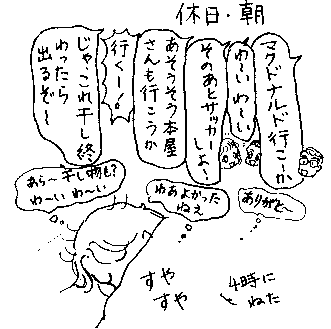 休日・朝
マクドナルド行こーか
わーいわーい
そのあとサッカー
しよ〜
あそうそう本屋
さんも行こうか
行くー!
じゃこれ干し終
わったら
出るぞ〜
ありがと〜
わあよかった
ねぇ
あら〜干し物も?
わ〜いわ〜い
すや
すや
4時に
ねた